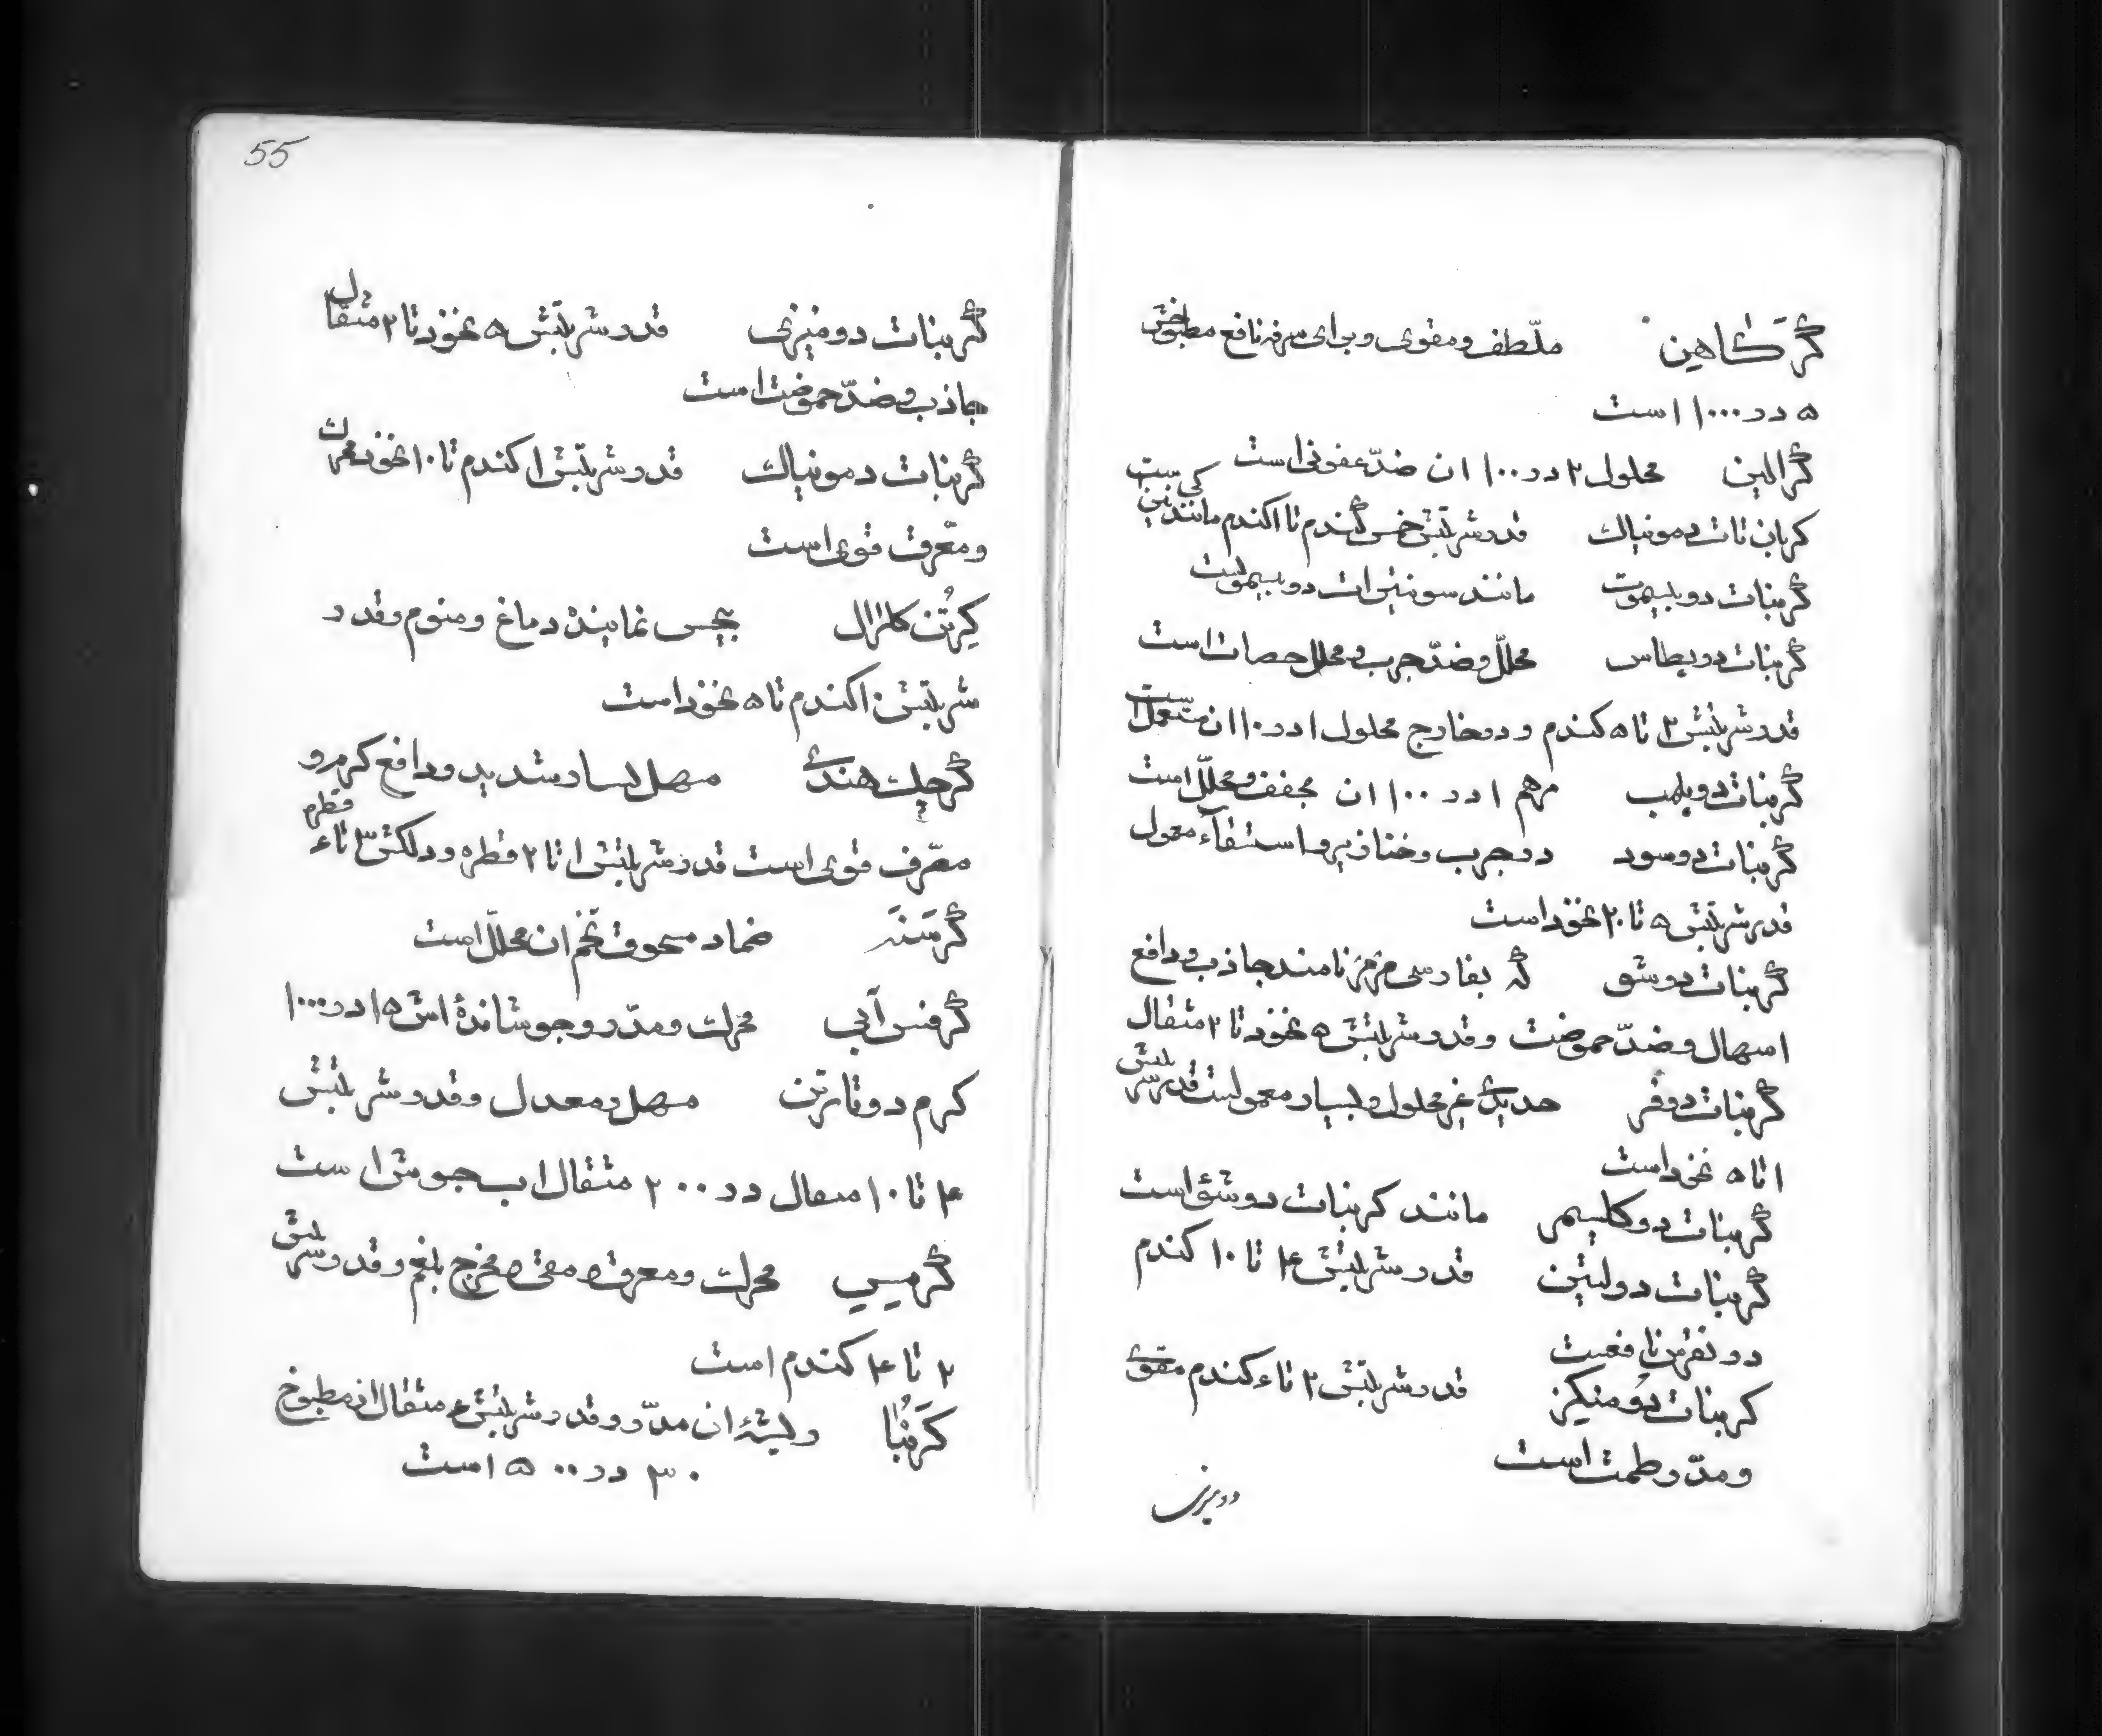 گرکاهین ملّطف و مقوی و برای سرفه نافع مطبوخش
۵ در ۱۰۰۰ است
گرالین محلول ۲ در ۱۰۰ ان ضدّ عفونی است
کربان تات دمونیاك قدر شربتش خمس گندم تا ۱ کندم مانند
گربنات دو بیسموت مانند سونیترات دو بیسموتست
گربنات دو پطاس محلّل و ضدّ جرب و محلل حصات است
قدر شربتش ۲ تا ۵ کندم و در خارج محلول ۱ در ۱۰ ان مستعمل است
گربنات دو پلمب مرهم ۱ در ۱۰۰ ان مجفف و محلّل است
گربنات دو سود در جرب و خنازیر و استسقآء معمول
قدر شربتش ۵ تا ۲۰ نخود است
گربنات دو شو که بفارسی نامند جاذب و دافع
اسهال و ضدّ حموضت و قدر شربتش ۵ نخود تا ۲ مثقال
گربنات دو فر حدیدی غیر محلول و بسیار معمولست قدر شربتش
۱ تا ۵ نخود است
گربنات دو کلسیم مانند کربنات دو شو است
گربنات دو لیتین قدر شربتش ۴ تا ۱۰ کندم
در نقرس نافعست
کربنات دو منیکنز قدر شربتش ۲ تا ۶ کندم مقوی
و مدّر طمث است
دو منیزی
55
گربنات دو منیزی قدر شربتش ۵ نخود تا ۲ مثقال
جاذب و ضدّ حموضت است
گربنات دمونیاك قدر شربتش ۱ کندم تا ۱۰ نخود محرك
و معّرق قوی است
کرتن کلرال بیحس نماینده دماغ و منوم و قدر
شربتش ۱۰ کندم تا ۵ نخود است
گرچك هندی مسهل بسیار شدید و دافع کرم و
معّرف قوی است قدر شربتش ۱ تا ۲ قطره و دلکش ۳ تا ۶ قطره
گرسنه ضماد مسحوق تخم ان محلّل است
گرفس آبی محرك و مدّر و جوشاندهٔ اش ۱۵ در ۱۰۰۰
کرم دو تارترن مسهل و معدل و قدر شربتش
۴ تا ۱۰ مثقال در ۲۰۰ مثقال اب جوش است
گرمیس محرك و معرق و مقی و مخرج بلغم و قدر شربتش
۲ تا ۴ کندم است
کرنبا ریشهٔ ان مدّر و قدر شربتش ۶ مثقال از مطبوخ
۳۰ در ۵۰۰ است